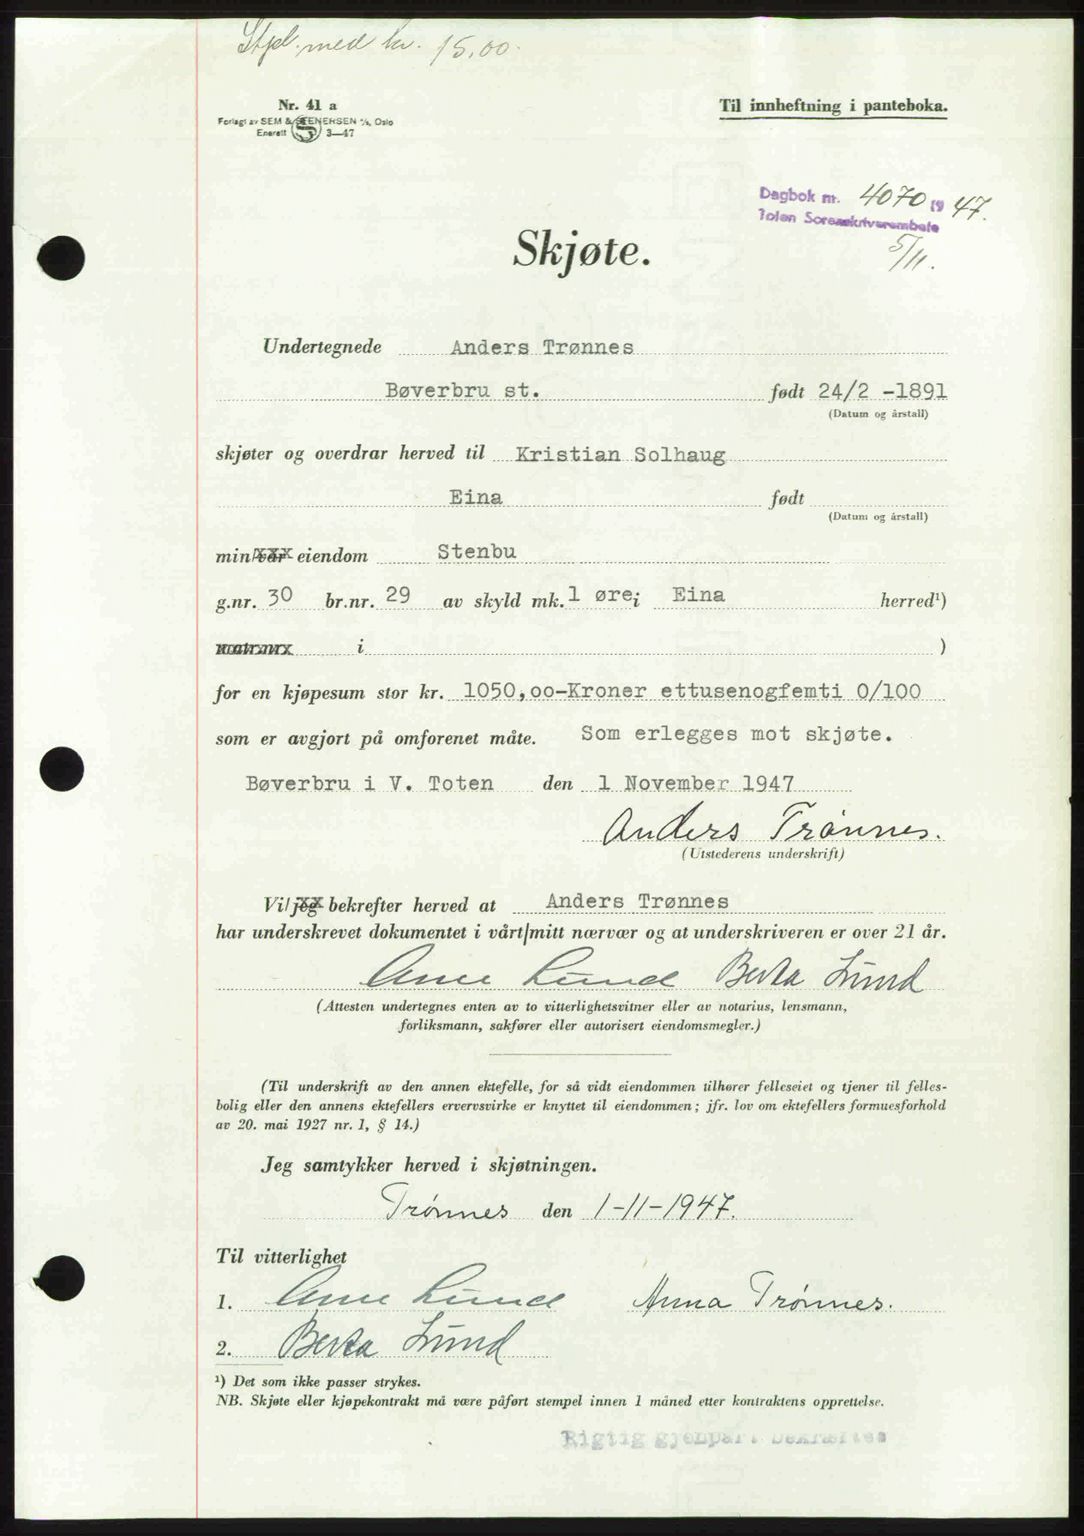 Stpl. med kr. 15.00.
Nr. 41 a
Til innheftning i panteboka.
Forlagt av SEM & STENERSEN A/S, Oslo
Enerett S 3—47
Dagbok nr. 4070 19 47.
Toten Sorenskriverembete
5/11.
Skjøte.
Undertegnede Anders Trønnes
Bøverbru st. født 24/2 -1891
(Datum og årstall)
skjøter og overdrar herved til Kristian Solhaug
Eina født
(Datum og årstall)
min/vår eiendom Stenbu
g.nr. 30 br.nr. 29 av skyld mk. 1 øre i Eina herred¹)
matr.nr. i )
for en kjøpesum stor kr. 1050,oo-Kroner ettusenogfemti 0/100
som er avgjort på omforenet måte. Som erlegges mot skjøte.
Bøverbru i V. Toten den 1 November 1947
Anders Trønnes.
(Utstederens underskrift)
Vi/jeg bekrefter herved at Anders Trønnes
har underskrevet dokumentet i vårt/mitt nærvær og at underskriveren er over 21 år.
Arne Lund Berta Lund
(Attesten undertegnes enten av to vitterlighetsvitner eller av notarius, lensmann,
forliksmann, sakfører eller autorisert eiendomsmegler.)
(Til underskrift av den annen ektefelle, for så vidt eiendommen tilhører felleseiet og tjener til felles-
bolig eller den annens ektefellers ervervsvirke er knyttet til eiendommen; jfr. lov om ektefellers formuesforhold
av 20. mai 1927 nr. 1, § 14.)
Jeg samtykker herved i skjøtningen.
Trønnes den 1-11-1947.
Til vitterlighet
1. Arne Lund Anna Trønnes.
2. Berta Lund
¹) Det som ikke passer strykes.
NB. Skjøte eller kjøpekontrakt må være påført stempel innen 1 måned etter kontraktens opprettelse.
Rigtig gjenpart bekræftes